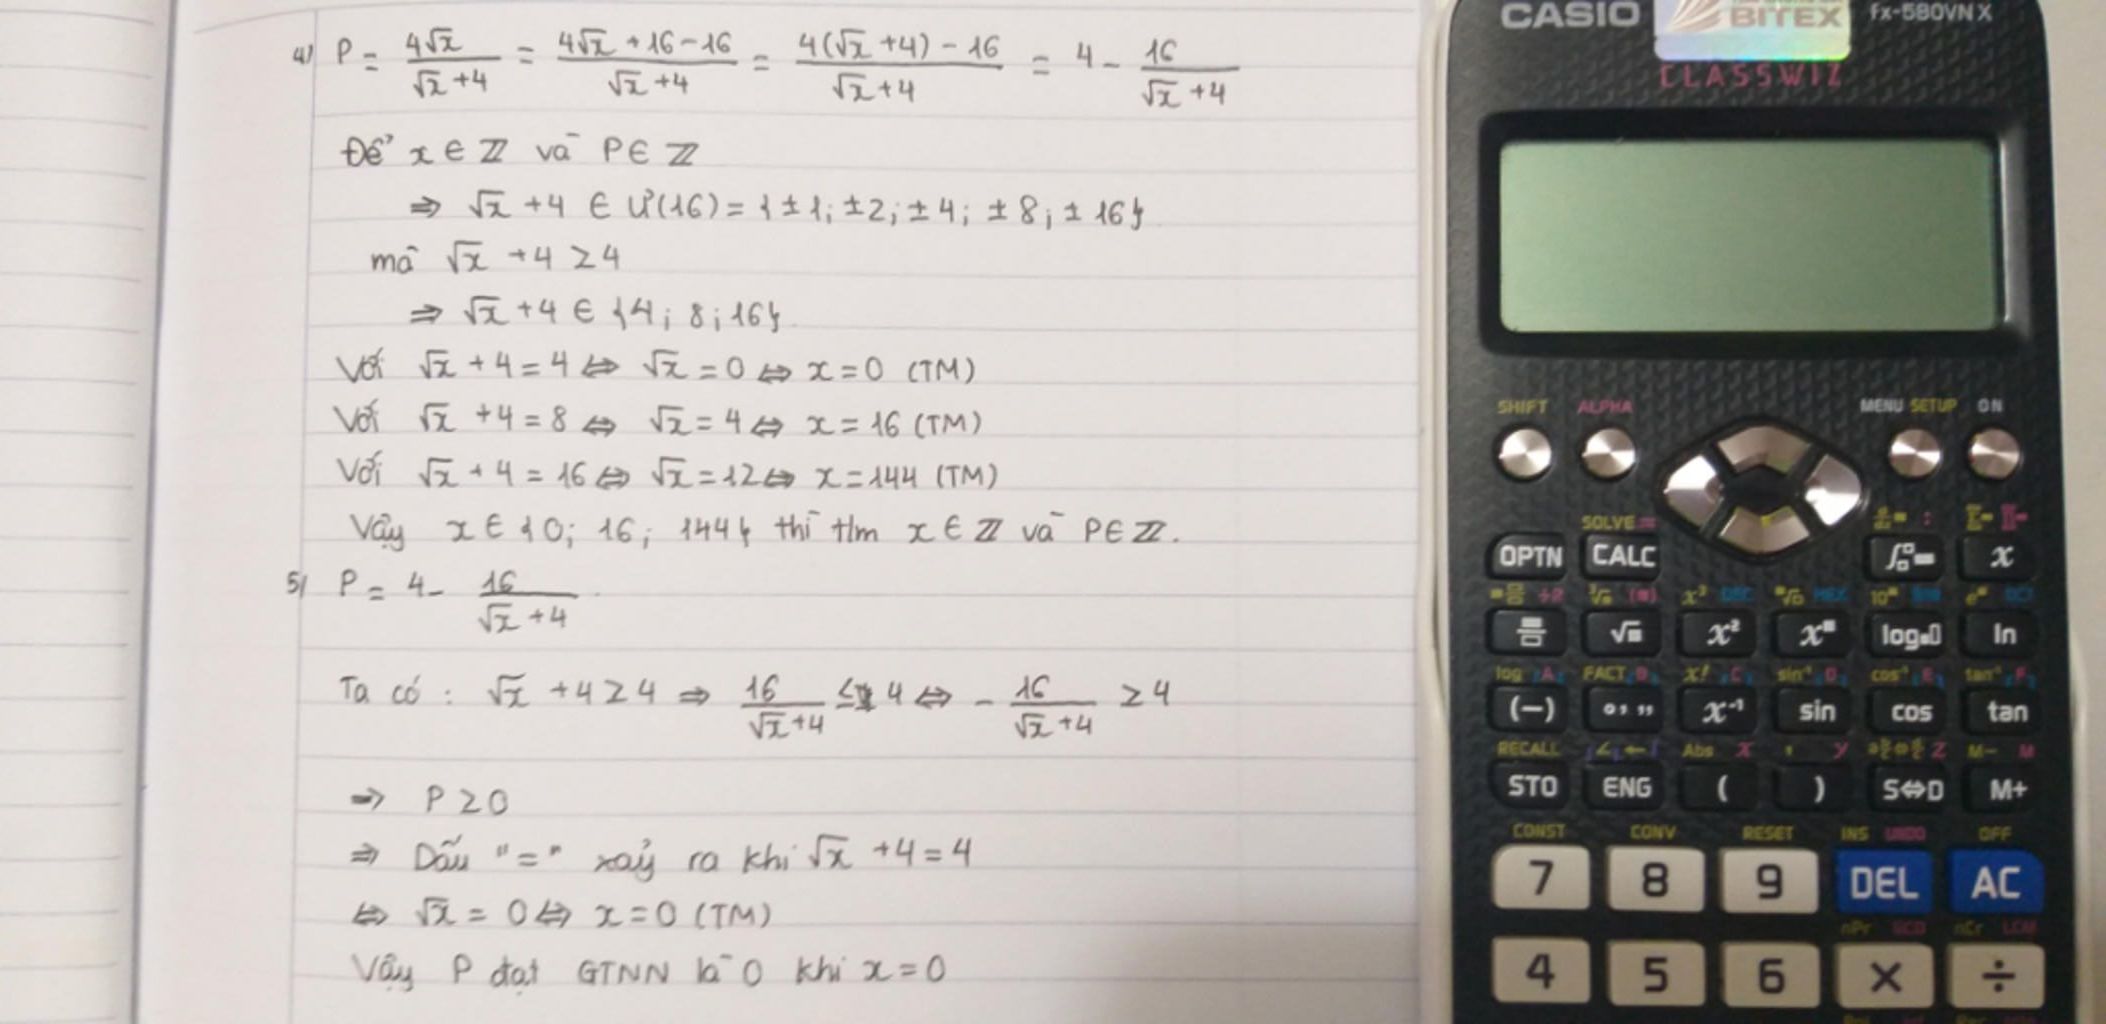 4) P = 4√x / (√x + 4) = (4√x + 16 - 16) / (√x + 4) = (4(√x + 4) - 16) / (√x + 4) = 4 - 16 / (√x + 4)
Để x ∈ Z và P ∈ Z
⇒ √x + 4 ∈ Ư(16) = {±1; ±2; ±4; ±8; ±16}
mà √x + 4 ≥ 4
⇒ √x + 4 ∈ {4; 8; 16}
Với √x + 4 = 4 ⇔ √x = 0 ⇔ x = 0 (TM)
Với √x + 4 = 8 ⇔ √x = 4 ⇔ x = 16 (TM)
Với √x + 4 = 16 ⇔ √x = 12 ⇔ x = 144 (TM)
Vậy x ∈ {0; 16; 144} thì tlm x ∈ Z và P ∈ Z.
5) P = 4 - 16 / (√x + 4)
Ta có: √x + 4 ≥ 4 ⇒ 16 / (√x + 4) ≤ 4 ⇔ - 16 / (√x + 4) ≥ 4
⇒ P ≥ 0
⇒ Dấu "=" xảy ra khi √x + 4 = 4
⇔ √x = 0 ⇔ x = 0 (TM)
Vậy P đạt GTNN là 0 khi x = 0
CASIO BITEX fx-580VN X
CLASSWIZ
SHIFT ALPHA MENU SETUP ON
SOLVE =
OPTN CALC x
x³ DEC HEX
x² log ln
log A FACT B x! C sin⁻¹ D cos⁻¹ E tan⁻¹ F
(−) x⁻¹ sin cos tan
RECALL ∠ ← Abs X Y Z M− M
STO ENG ( ) S⇔D M+
CONST CONV RESET INS UNDO OFF
7 8 9 DEL AC
nPr GCD nCr LCM
4 5 6 × ÷